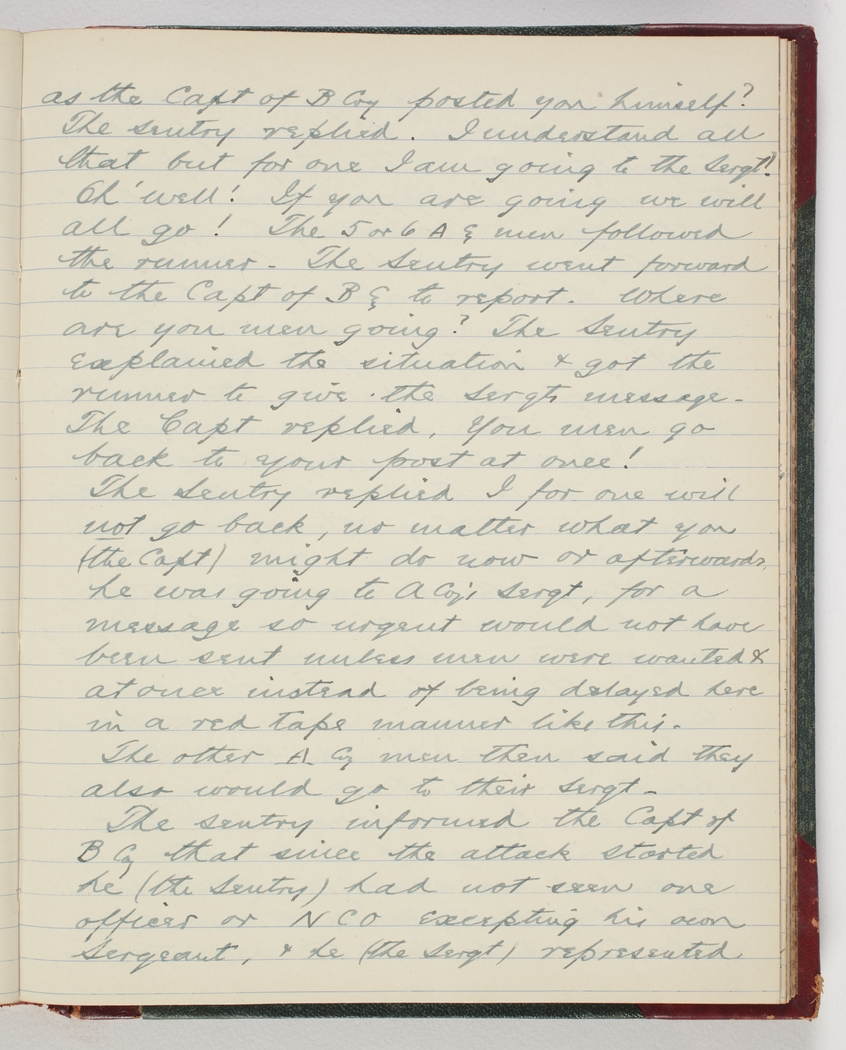 as the Capt of B Coy posted you himself?
The sentry replied. I understand all
that but for one I am going to the Sergt!
Oh' well! If you are going we will
all go! The 5 or 6 A Cy men followed
the runner - The Sentry went forward
to the Capt of B Cy to report. Where
are you men going? The Sentry
explained the situation & got the
runner to give the Sergts message -
The Capt replied, You men go
back to your post at once!
The Sentry replied I for one will
not go back, no matter what you
(the Capt) might do now or afterwards,
he was going to A Coy's Sergt, for a
message so urgent would not have
been sent unless men were wanted &
at once instead of being delayed here
in a red tape manner like this.
The other A Cy men then said they
also would go to their Sergt -
The sentry informed the Capt of
B Cy that since the attack started
he (the Sentry) had not seen one
officer or NCO excepting his own
Sergeant, & he (the Sergt) represented